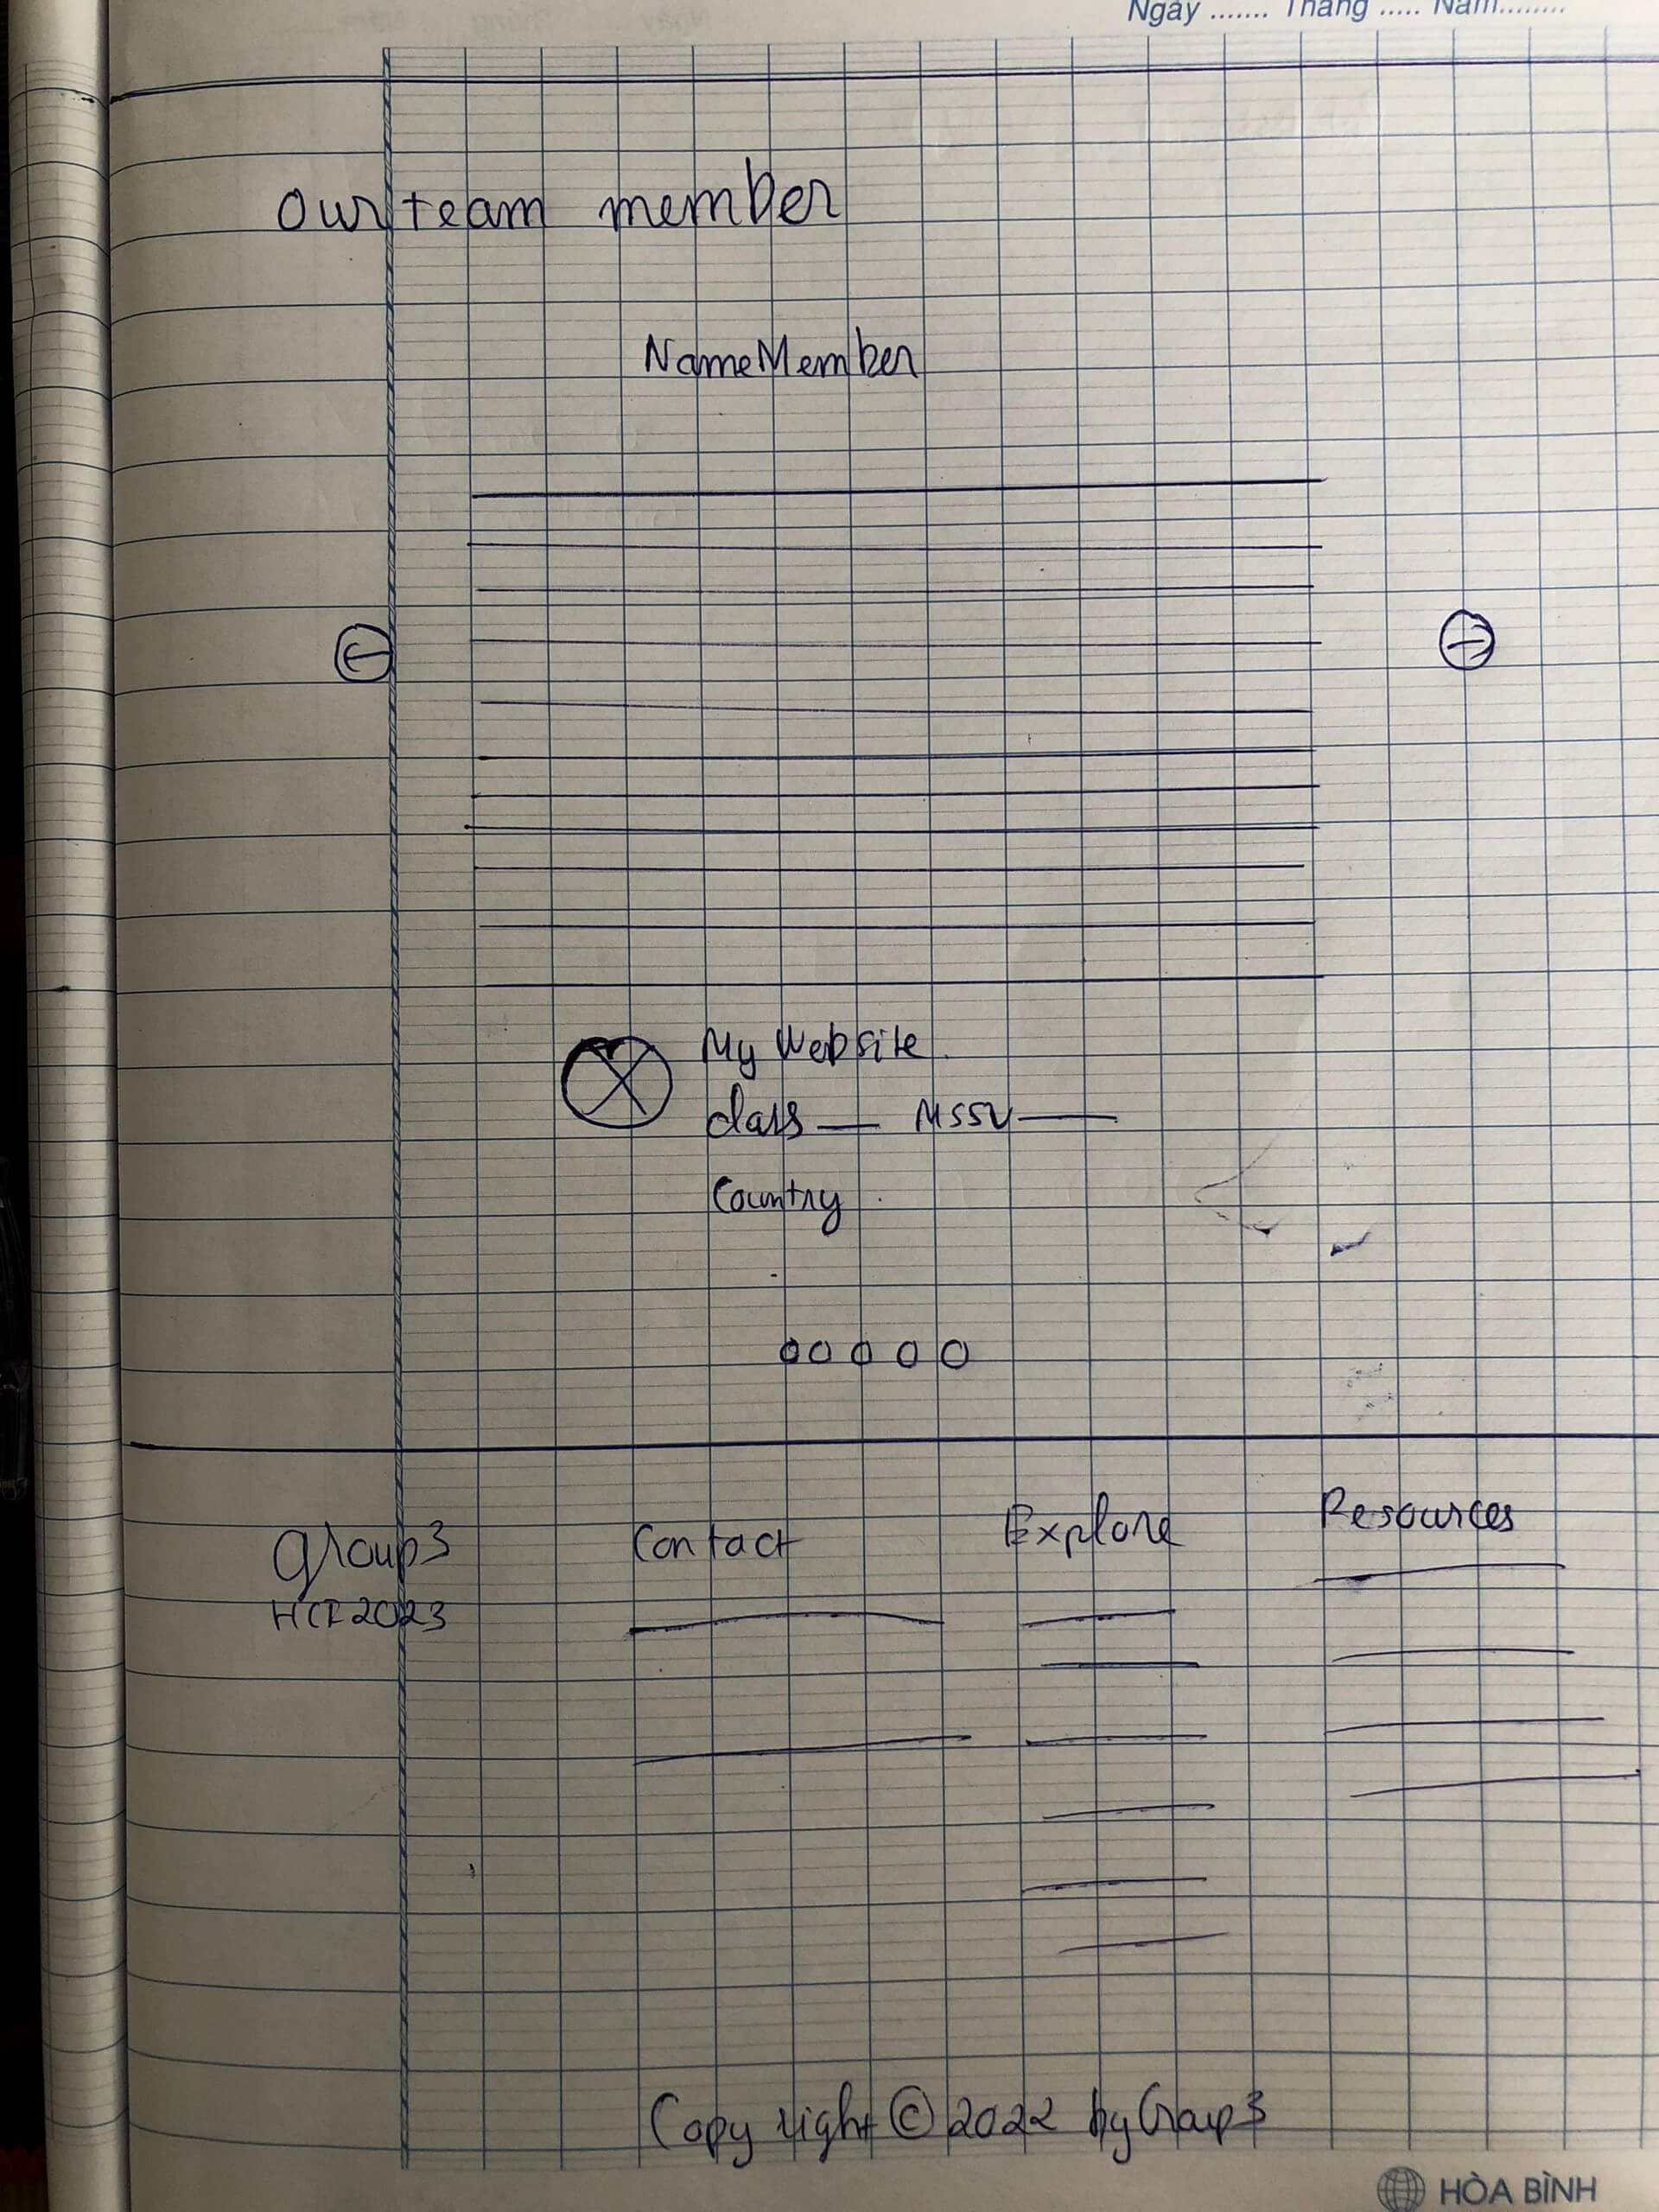 Ngày ....... Tháng ..... Năm........
Our team member
NameMember
My Website
class — MSSV —
Country
Group3 Contact Explore Resources
HCI 2023
Copy right © 2022 by Group3
HÒA BÌNH